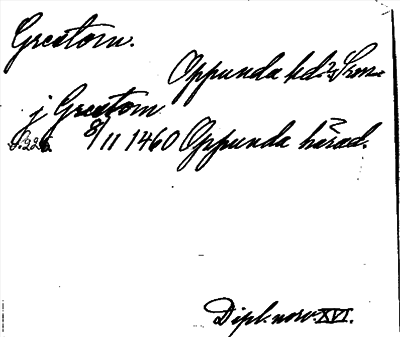 Grestorn.
Oppunda hd.
j Grestorn
s. 226. 8/11 1460 Oppunda härad.
Dipl. norv. XVI.